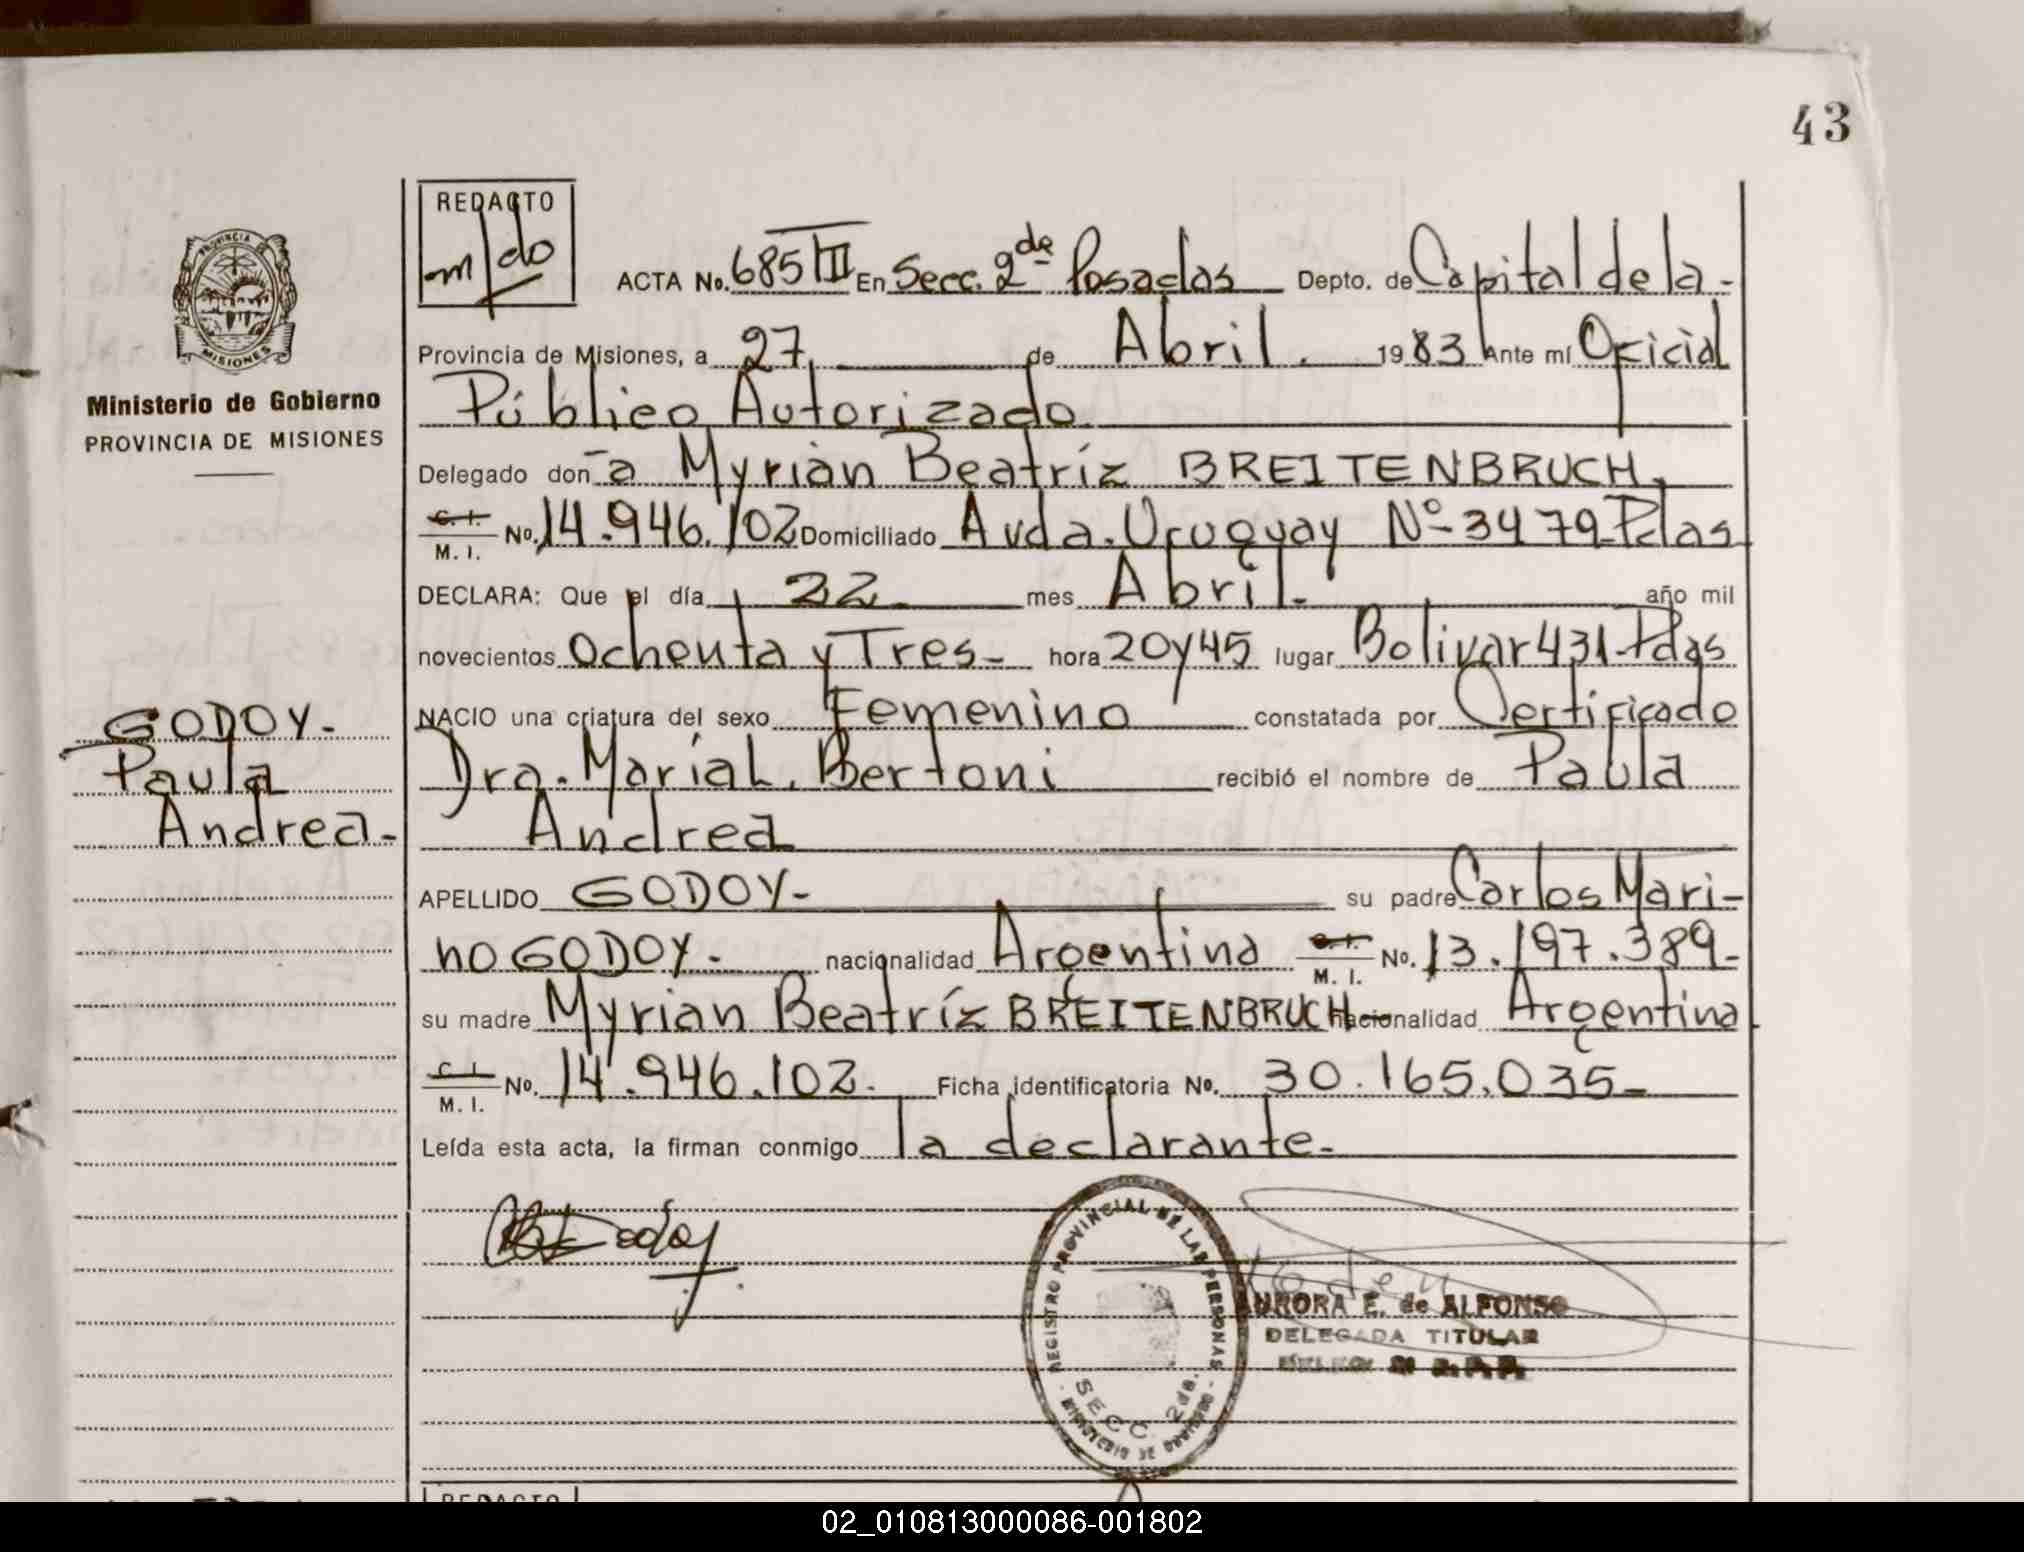 43
REDACTO
m/do
ACTA No. 685/II En Secc. 2da Posadas Depto. de Capital de la-
Provincia de Misiones, a 27 de Abril. 1983 Ante mí Oficial
Público Autorizado
Delegado don-a Myrian Beatríz BREITENBRUCH,
C. I.
M. I. No. 14.946.102 Domiciliado Avda. Uruguay Nº 3479-Pdas
DECLARA: Que el día 22 mes Abril. año mil
novecientos Ochenta y Tres- hora 20y45 lugar Bolivar 431-Pdas
NACIO una criatura del sexo Femenino constatada por Certificado
Dra. María L. Bertoni recibió el nombre de Paula
Andrea
APELLIDO GODOY- su padre Carlos Mari-
no GODOY. nacionalidad Argentina C. I.
M. I. No. 13.197.389-
su madre Myrian Beatríz BREITENBRUCH nacionalidad Argentina
C. I.
M. I. No. 14.946.102. Ficha identificatoria No. 30.165.035-
Leída esta acta, la firman conmigo la declarante-
PROVINCIA DE
MISIONES
Ministerio de Gobierno
PROVINCIA DE MISIONES
GODOY-
Paula
Andrea-
REGISTRO PROVINCIAL DE LAS PERSONAS
SECC. 2da.
AURORA E. de ALFONSO
DELEGADA TITULAR
REDACTO
02_010813000086-001802